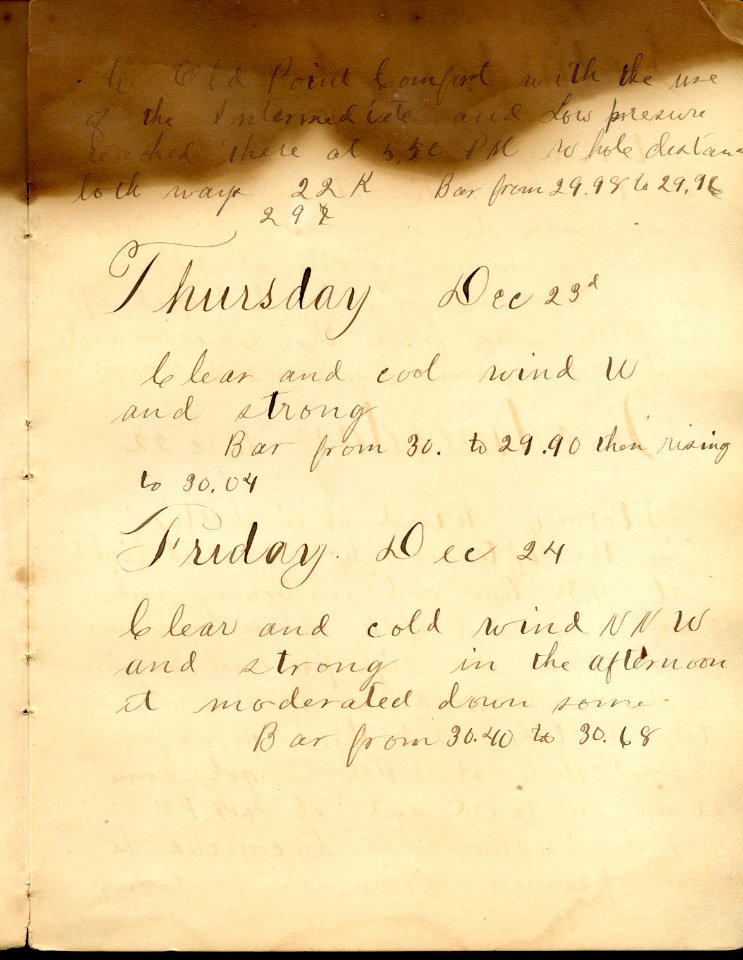 to Old Point Comfort with the use
of the Intermediate and Low presure
reached there at 5,50 PM whole distance
both ways 22 K Bar from 29.98 to 29.96
29
Thursday Dec 23d
Clear and cool wind W
and strong
Bar from 30. to 29.90 then rising
to 30.04
Friday. Dec 24
Clear and cold wind NNW
and strong in the afternoon
it moderated down some
Bar from 30.40 to 30.68